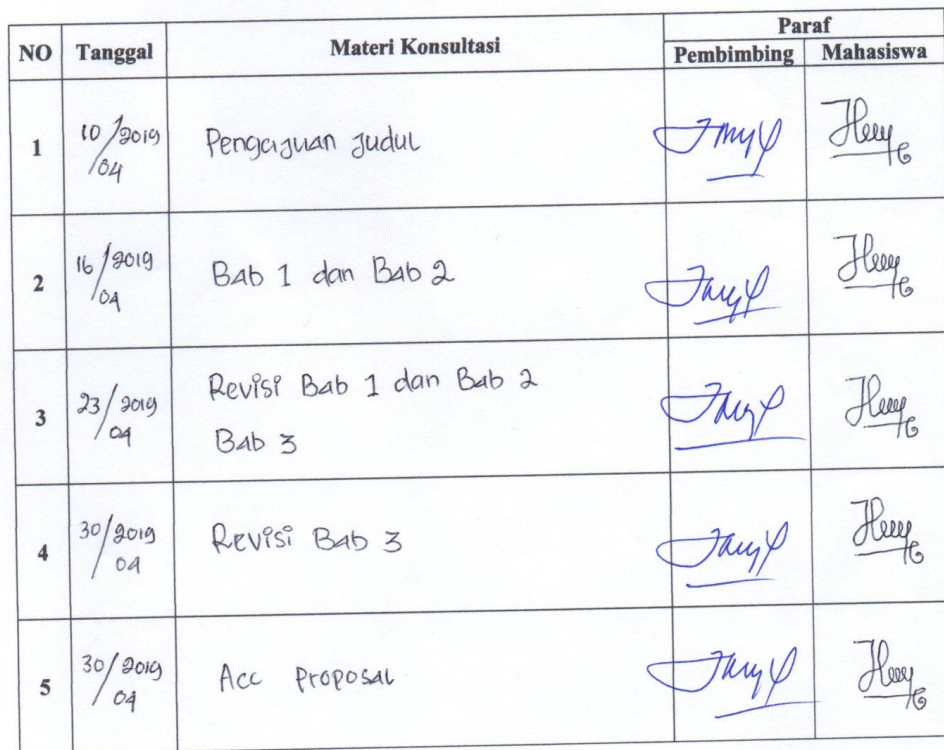 NO Tanggal Materi Konsultasi Paraf
Pembimbing Mahasiswa
1 10/04 2019 Pengajuan Judul
2 16/04 2019 Bab 1 dan Bab 2
3 23/04 2019 Revisi Bab 1 dan Bab 2
Bab 3
4 30/04 2019 Revisi Bab 3
5 30/04 2019 Acc Proposal